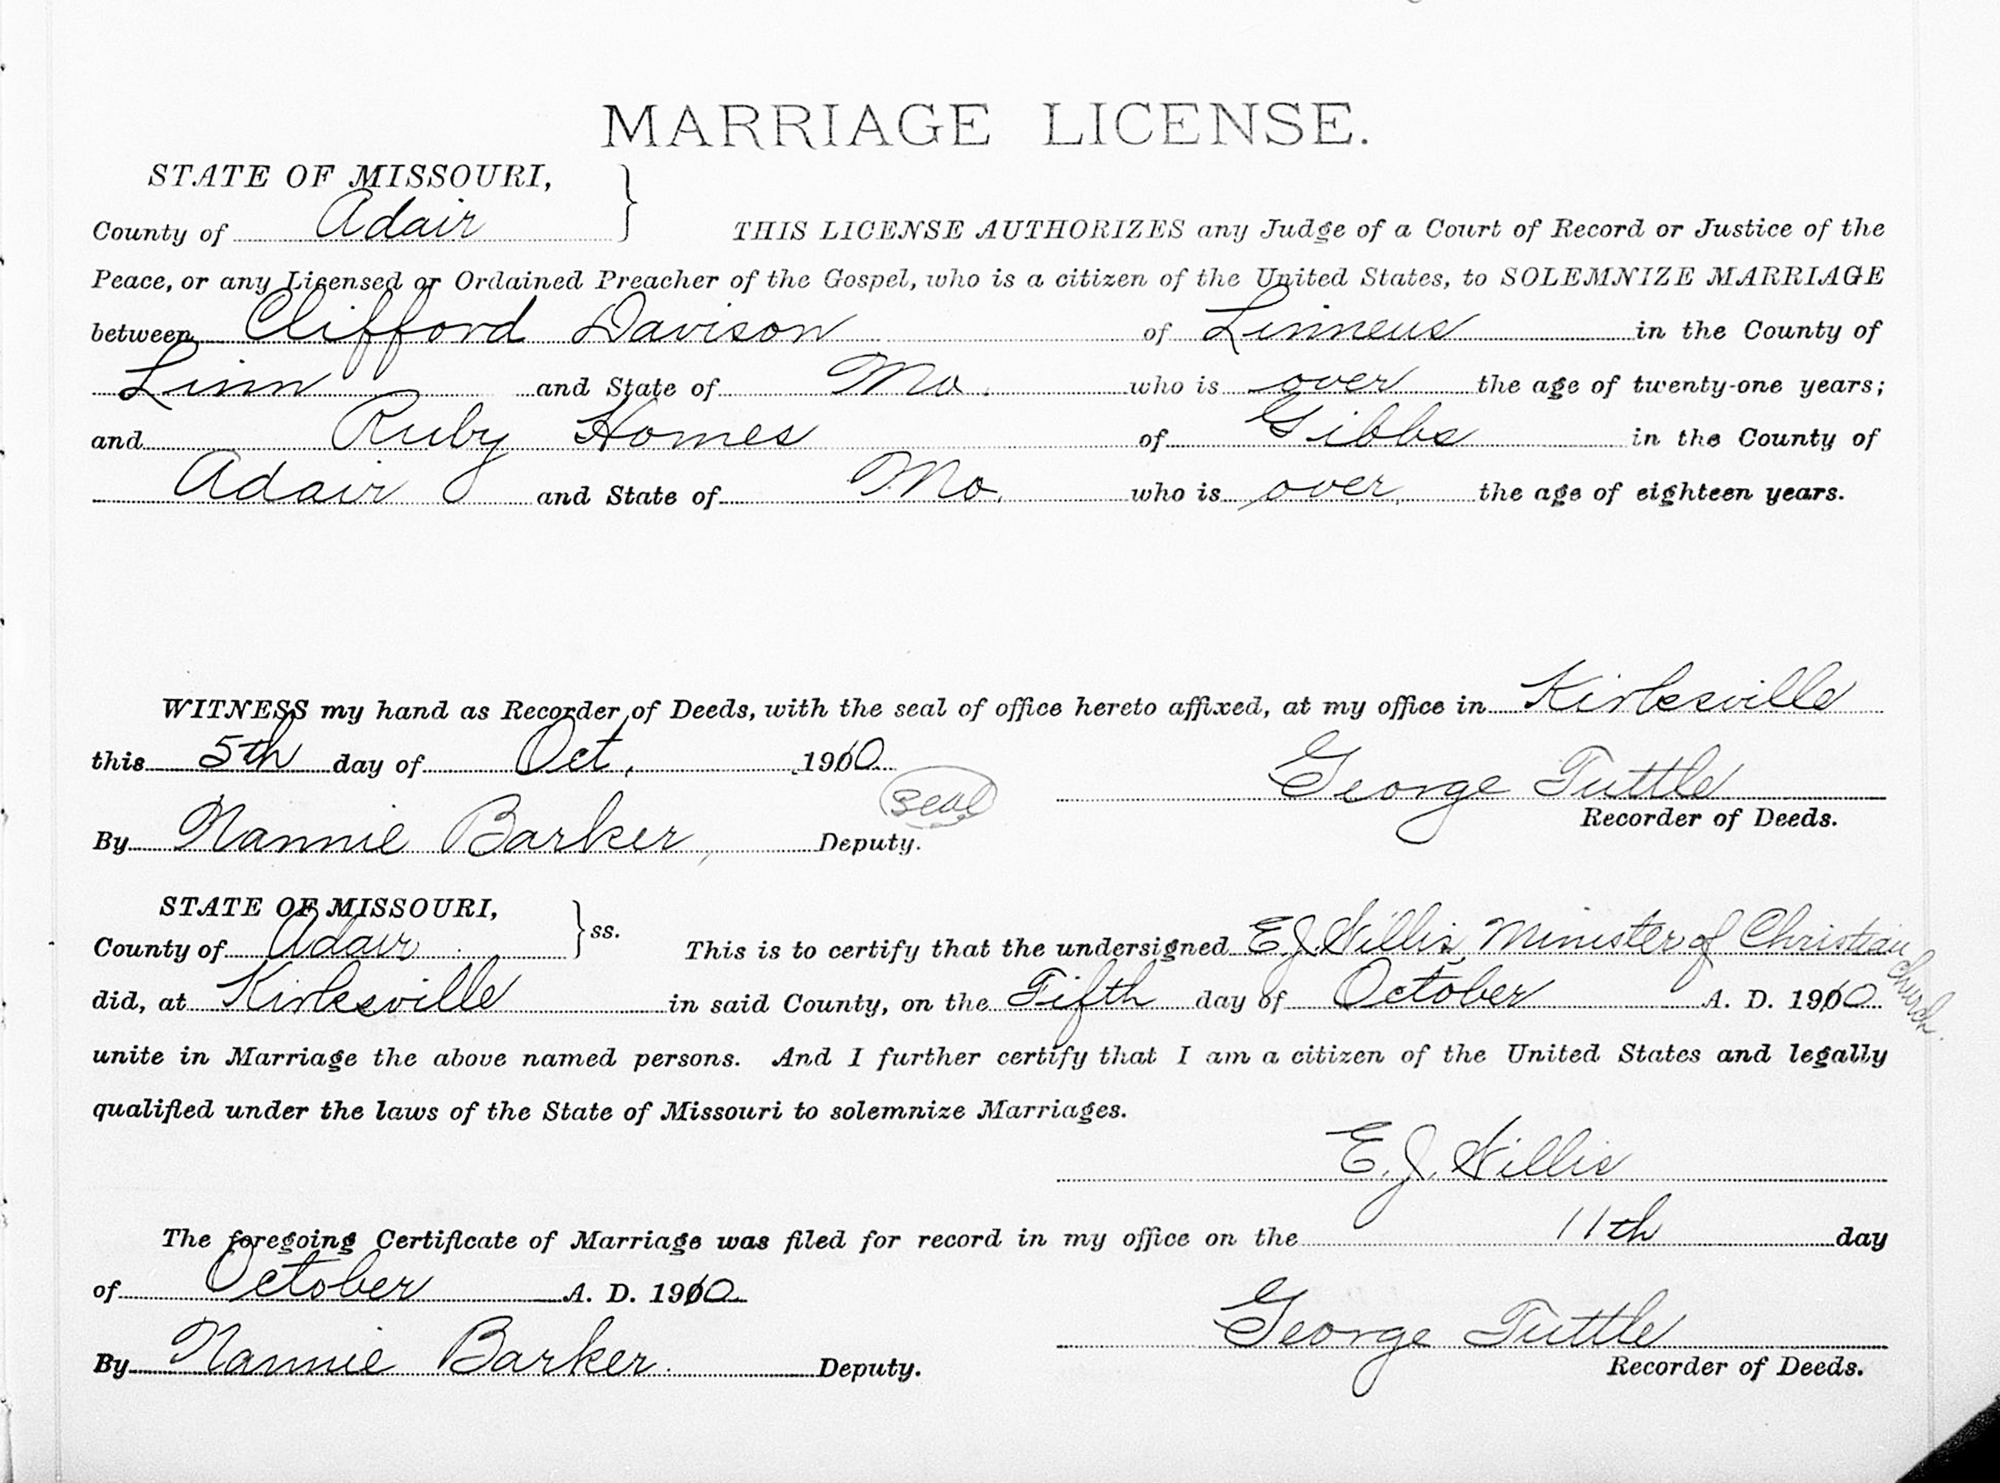 MARRIAGE LICENSE.
STATE OF MISSOURI,
County of Adair } THIS LICENSE AUTHORIZES any Judge of a Court of Record or Justice of the
Peace, or any Licensed or Ordained Preacher of the Gospel, who is a citizen of the United States, to SOLEMNIZE MARRIAGE
between Clifford Davison of Linneus in the County of
Linn and State of Mo. who is over the age of twenty-one years;
and Ruby Homes of Gibbs in the County of
Adair and State of Mo. who is over the age of eighteen years.
WITNESS my hand as Recorder of Deeds, with the seal of office hereto affixed, at my office in Kirksville
this 5th day of Oct, 1910
George Tuttle
Seal
Recorder of Deeds.
By Nannie Barker, Deputy.
STATE OF MISSOURI,
County of Adair } ss. This is to certify that the undersigned E.J. Willis, Minister of Christian church.
did, at Kirksville in said County, on the Fifth day of October A. D. 1910
unite in Marriage the above named persons. And I further certify that I am a citizen of the United States and legally
qualified under the laws of the State of Missouri to solemnize Marriages.
E. J. Willis
The foregoing Certificate of Marriage was filed for record in my office on the 11th day
of October A. D. 1910
George Tuttle
By Nannie Barker. Deputy. Recorder of Deeds.